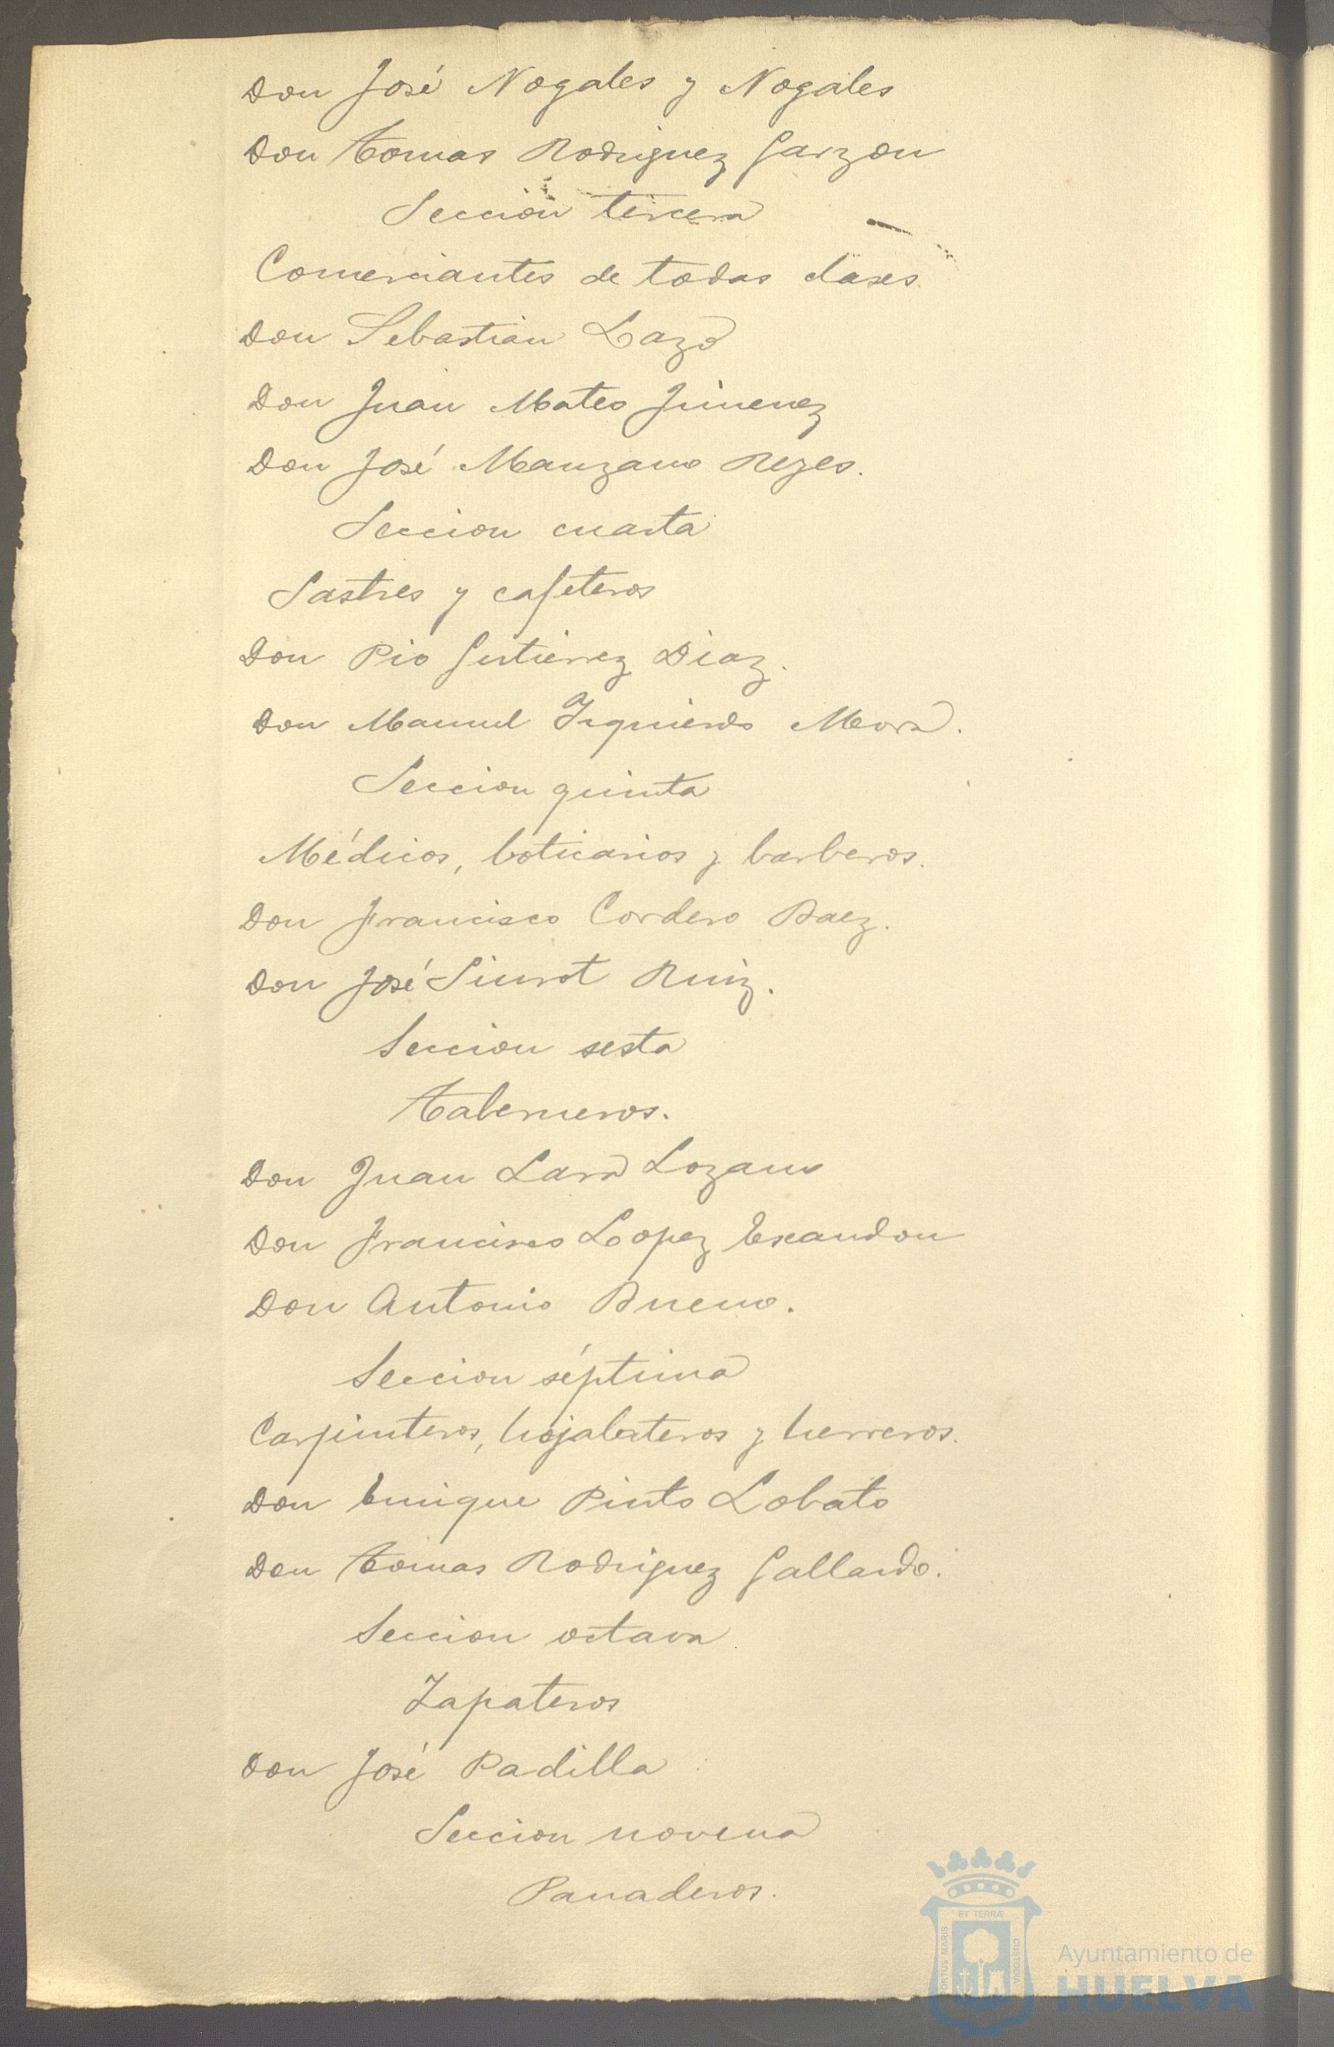 Don José Nogales y Nogales
Don Tomas Rodriguez Garzon
Sección tercera
Comerciantes de todas clases.
Don Sebastián Lazo
Don Juan Mateo Jimenez
Don José Manzano Reyes.
Seccion cuarta
Sastres y cafeteros
Don Pio Gutierrez Diaz.
Don Manuel Izquierdo Mora.
Seccion quinta
Médicos, boticarios y barberos.
Don Francisco Cordero Baez.
Don José Siurot Ruiz.
Seccion sesta
Taberneros.
Don Juan Lara Lozano
Don Francisco Lopez Escandon
Don Antonio Bueno.
Seccion séptima
Carpinteros, hojalateros y herreros.
Don Enrique Pinto Lobato
Don Tomas Rodriguez Gallardo.
Seccion octava
Zapateros
Don José Padilla
Seccion novena
Panaderos.
PORTUS MARIS ET TERRÆ CUSTODIA
Ayuntamiento de
HUELVA